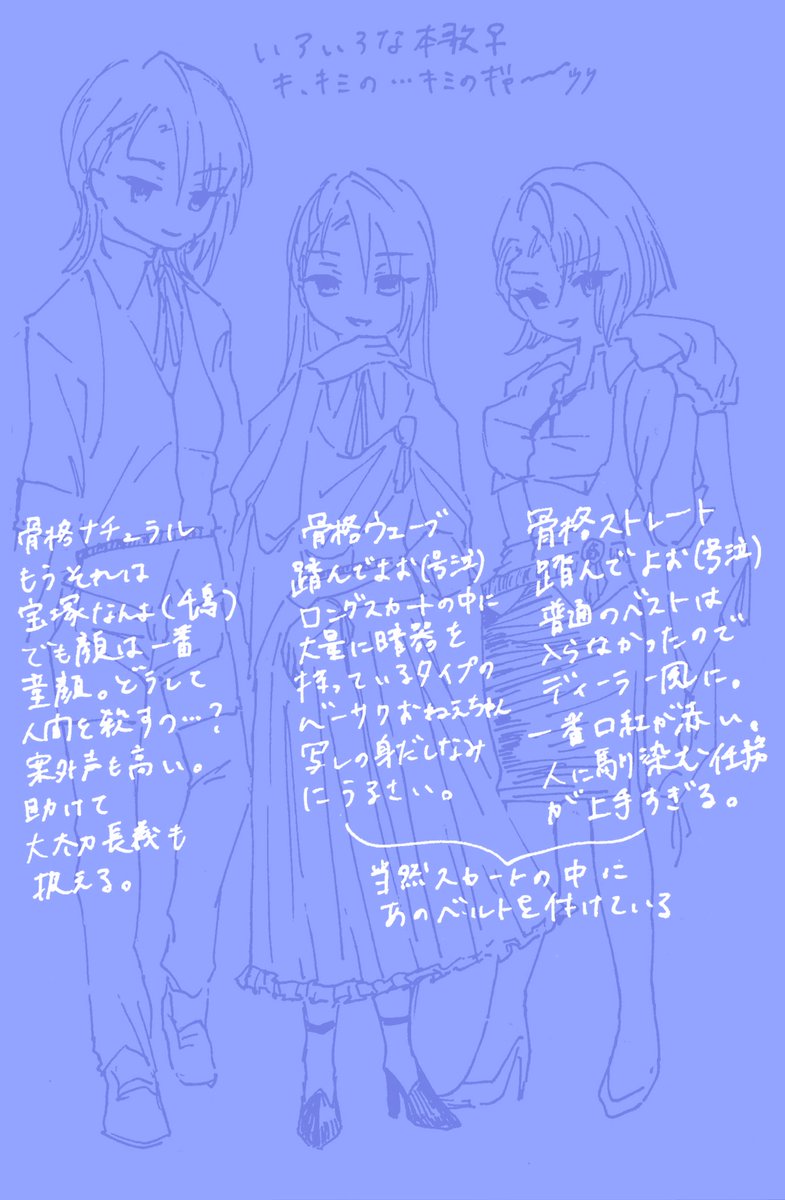 いろいろな本歌♀
キ、キミの…キミのギャ〜〜ッッ
骨格ナチュラル
もうそれは
宝塚なんよ(千鳥)
でも顔は一番
童顔。どうして
人間を殺すの…?
案外声も高い。
助けて
大太刀長義も
扱える。
骨格ウェーブ
踏んでよお(号泣)
ロングスカートの中に
大量に暗器を
持っているタイプの
ベーサクおねえちゃん
写しの身だしなみ
にうるさい。
骨格ストレート
踏んでよお(号泣)
普通のベストは
入らなかったので
ディーラー風に。
一番口紅が赤い。
人に馴染む任務
が上手すぎる。
当然スカートの中に
あのベルトを付けている